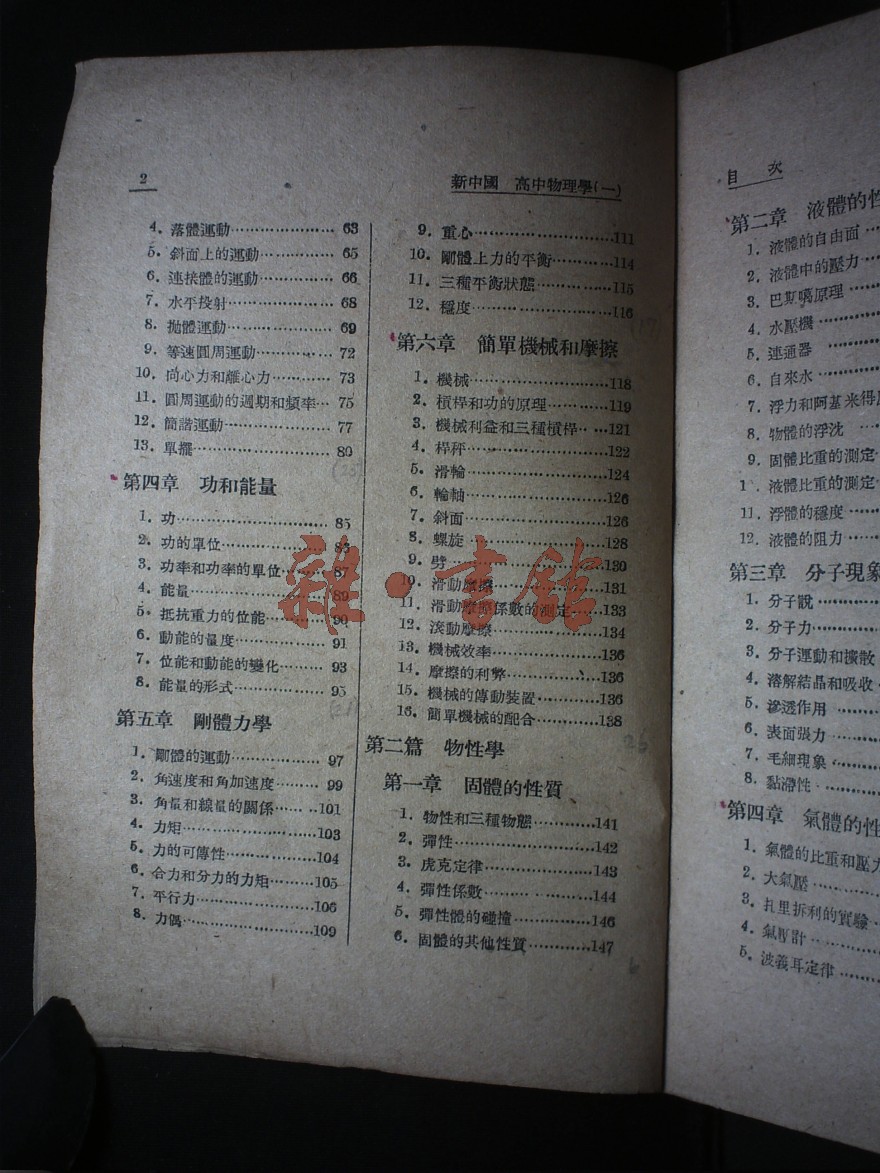 2
新中國 高中物理學(一)
4. 落體運動 63
5. 斜面上的運動 65
6. 連接體的運動 66
7. 水平投射 68
8. 抛體運動 69
9. 等速圓周運動 72
10. 向心力和離心力 73
11. 圓周運動的週期和頻率 75
12. 簡諧運動 77
13. 單擺 80
第四章 功和能量
1. 功 85
2. 功的單位 86
3. 功率和功率的單位 87
4. 能量 89
5. 抵抗重力的位能 90
6. 動能的量度 91
7. 位能和動能的變化 93
8. 能量的形式 95
第五章 剛體力學
1. 剛體的運動 97
2. 角速度和角加速度 99
3. 角量和線量的關係 101
4. 力矩 103
5. 力的可傳性 104
6. 合力和分力的力矩 105
7. 平行力 106
8. 力偶 109
9. 重心 111
10. 剛體上力的平衡 114
11. 三種平衡狀態 115
12. 穩度 116
第六章 簡單機械和摩擦
1. 機械 118
2. 槓桿和功的原理 119
3. 機械利益和三種槓桿 121
4. 桿秤 122
5. 滑輪 124
6. 輪軸 126
7. 斜面 126
8. 螺旋 128
9. 劈 130
10. 滑動摩擦 131
11. 滑動摩擦係數的測定 133
12. 滾動摩擦 134
13. 機械效率 136
14. 摩擦的利弊 136
15. 機械的傳動裝置 136
16. 簡單機械的配合 138
第二篇 物性學
第一章 固體的性質
1. 物性和三種物態 141
2. 彈性 142
3. 虎克定律 143
4. 彈性係數 144
5. 彈性體的碰撞 146
6. 固體的其他性質 147
目 次
第二章 液體的性
1. 液體的自由面
2. 液體中的壓力
3. 巴斯噶原理
4. 水壓機
5. 連通器
6. 自來水
7. 浮力和阿基米得
8. 物體的浮沈
9. 固體比重的測定
1 . 液體比重的測定
11. 浮體的穩度
12. 液體的阻力
第三章 分子現象
1. 分子說
2. 分子力
3. 分子運動和擴散
4. 溶解結晶和吸收
5. 滲透作用
6. 表面張力
7. 毛細現象
8. 黏滯性
第四章 氣體的性
1. 氣體的比重和壓力
2. 大氣壓
3. 扎里拆利的實驗
4. 氣壓計
5. 波義耳定律
雜·書館